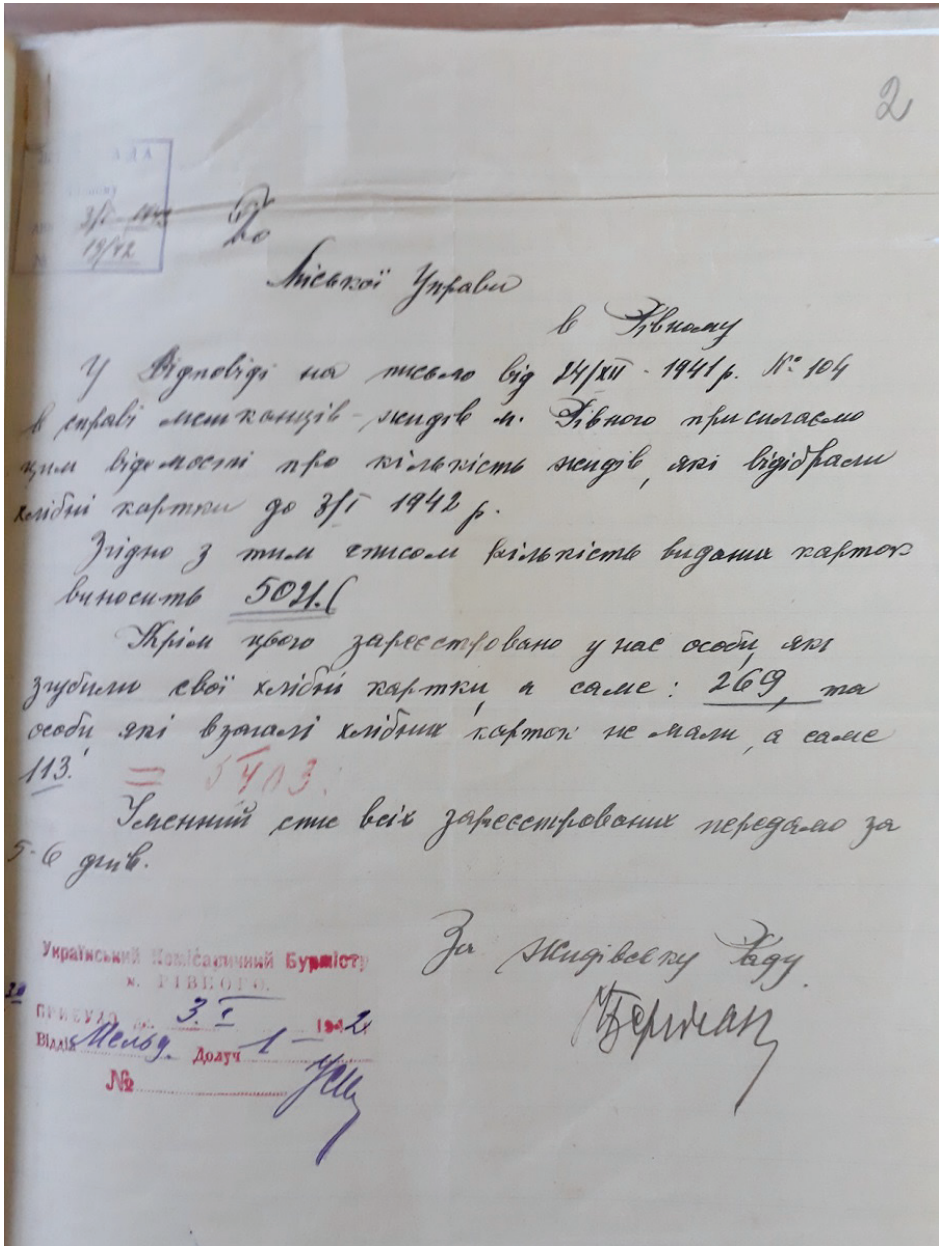 2
АДА
3/I 1942
19/42
До
Міської Управи
в Рівному
У Відповіді на письмо від 24/XII - 1941 р. № 104
в справі мешканців - жидів м. Рівного присилаємо
цим відомості про кількість жидів, які відібрали
хлібні картки до 3/I 1942 р.
Згідно з тим списом кількість виданих карток
виносить 5021.
Крім цього зареєстровано у нас особи, які
згубили свої хлібні картки, а саме: 269, та
особи, які взагалі хлібних карток не мали, а саме
113. = 5403.
Іменний спис всіх зареєстрованих передамо за
5-6 днів.
За жидівську Раду
Берман
Український Комісаричний Бурмістр
м. РІВНОГО.
ПРИБУЛО дн. 3.I 1942
Відділ Мельд. Долуч 1
№